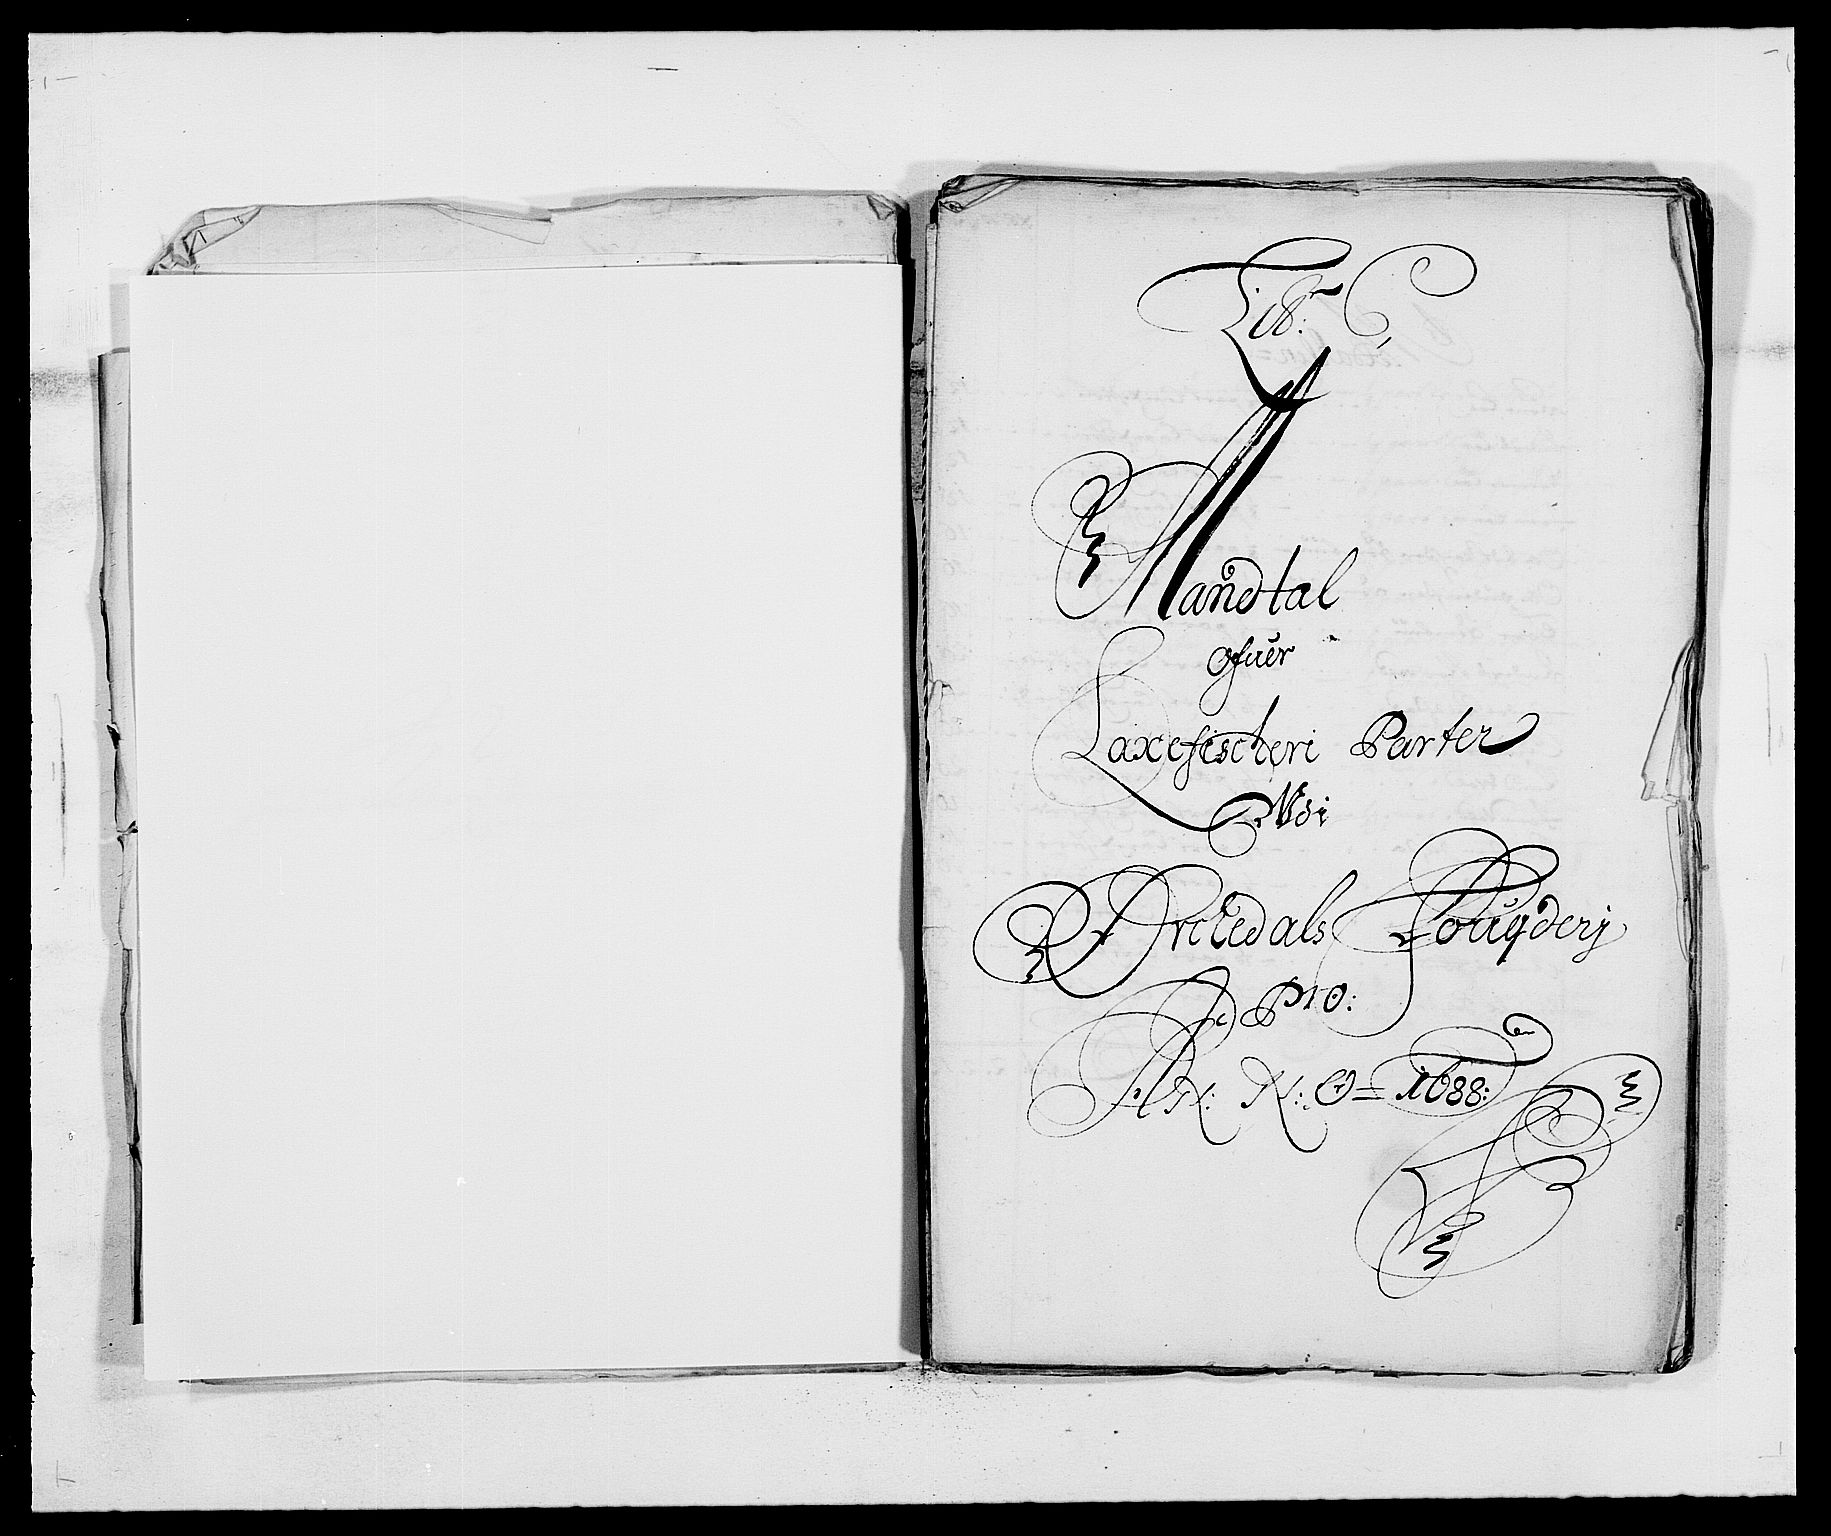 Lit: C,
Mandtal
ofuer
Laxefischeri Parter
Udi
Orckedals Fougderj
Pro:
A N N O = 1688: